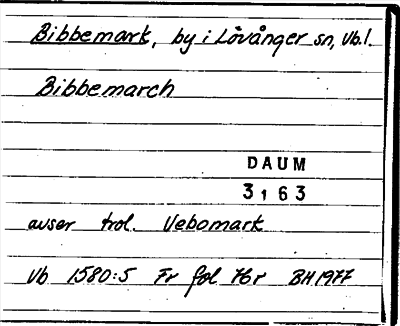 Bibbemark, by i Lövånger sn, Vb.l.
Bibbemarch
DAUM
3163
avser trol. Uebomark
Vb 1580:5 Fr fol 76r BH 1977